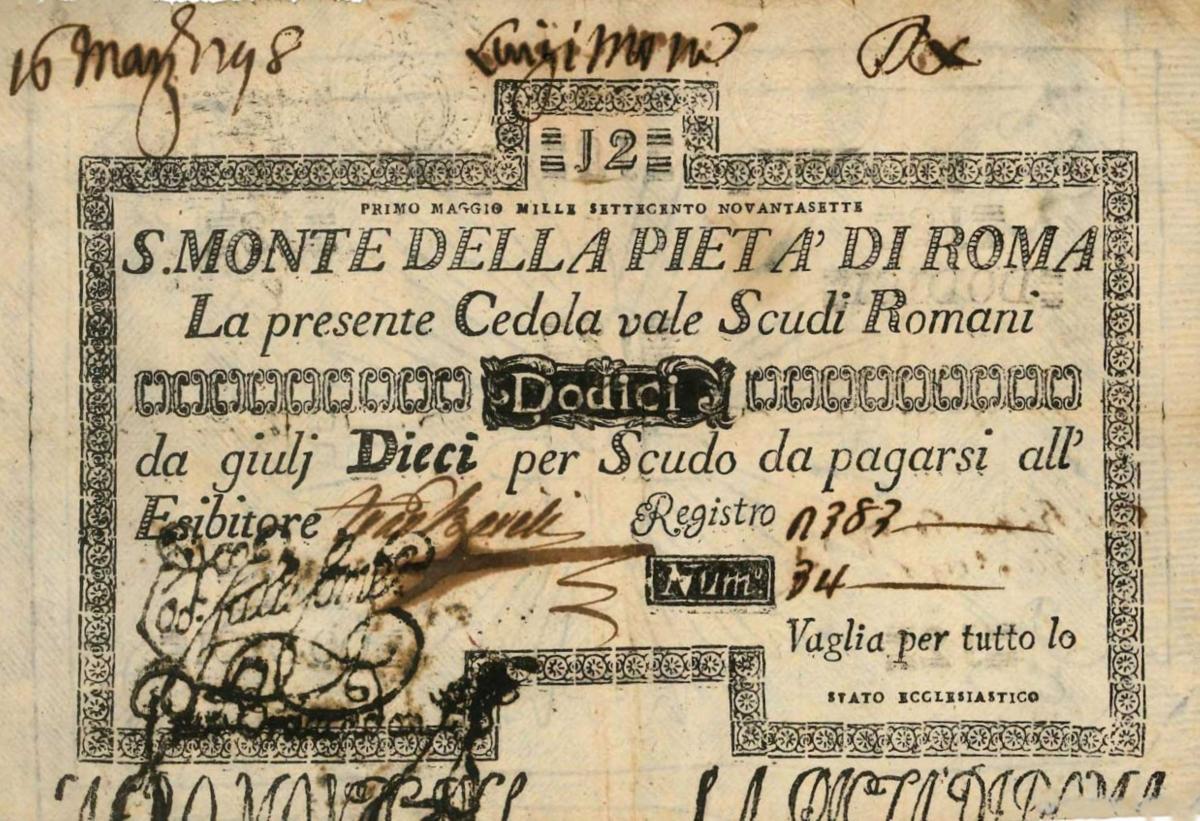 16 Mag 1798 Luigi
J2
PRIMO MAGGIO MILLE SETTECENTO NOVANTASETTE
S. MONTE DELLA PIETA' DI ROMA
La presente Cedola vale Scudi Romani
Dodici
da giulj Dieci per Scudo da pagarsi all'
Esibitore Registro n 383
Num. 34
Vaglia per tutto lo
STATO ECCLESIASTICO